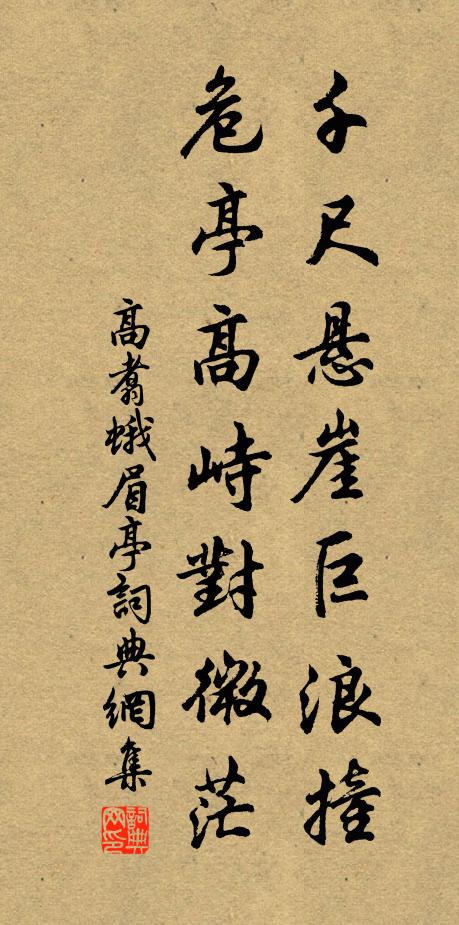 千尺悬崖巨浪撞
危亭高峙對微茫
高翥蛾眉亭詞典網集
詞典网印